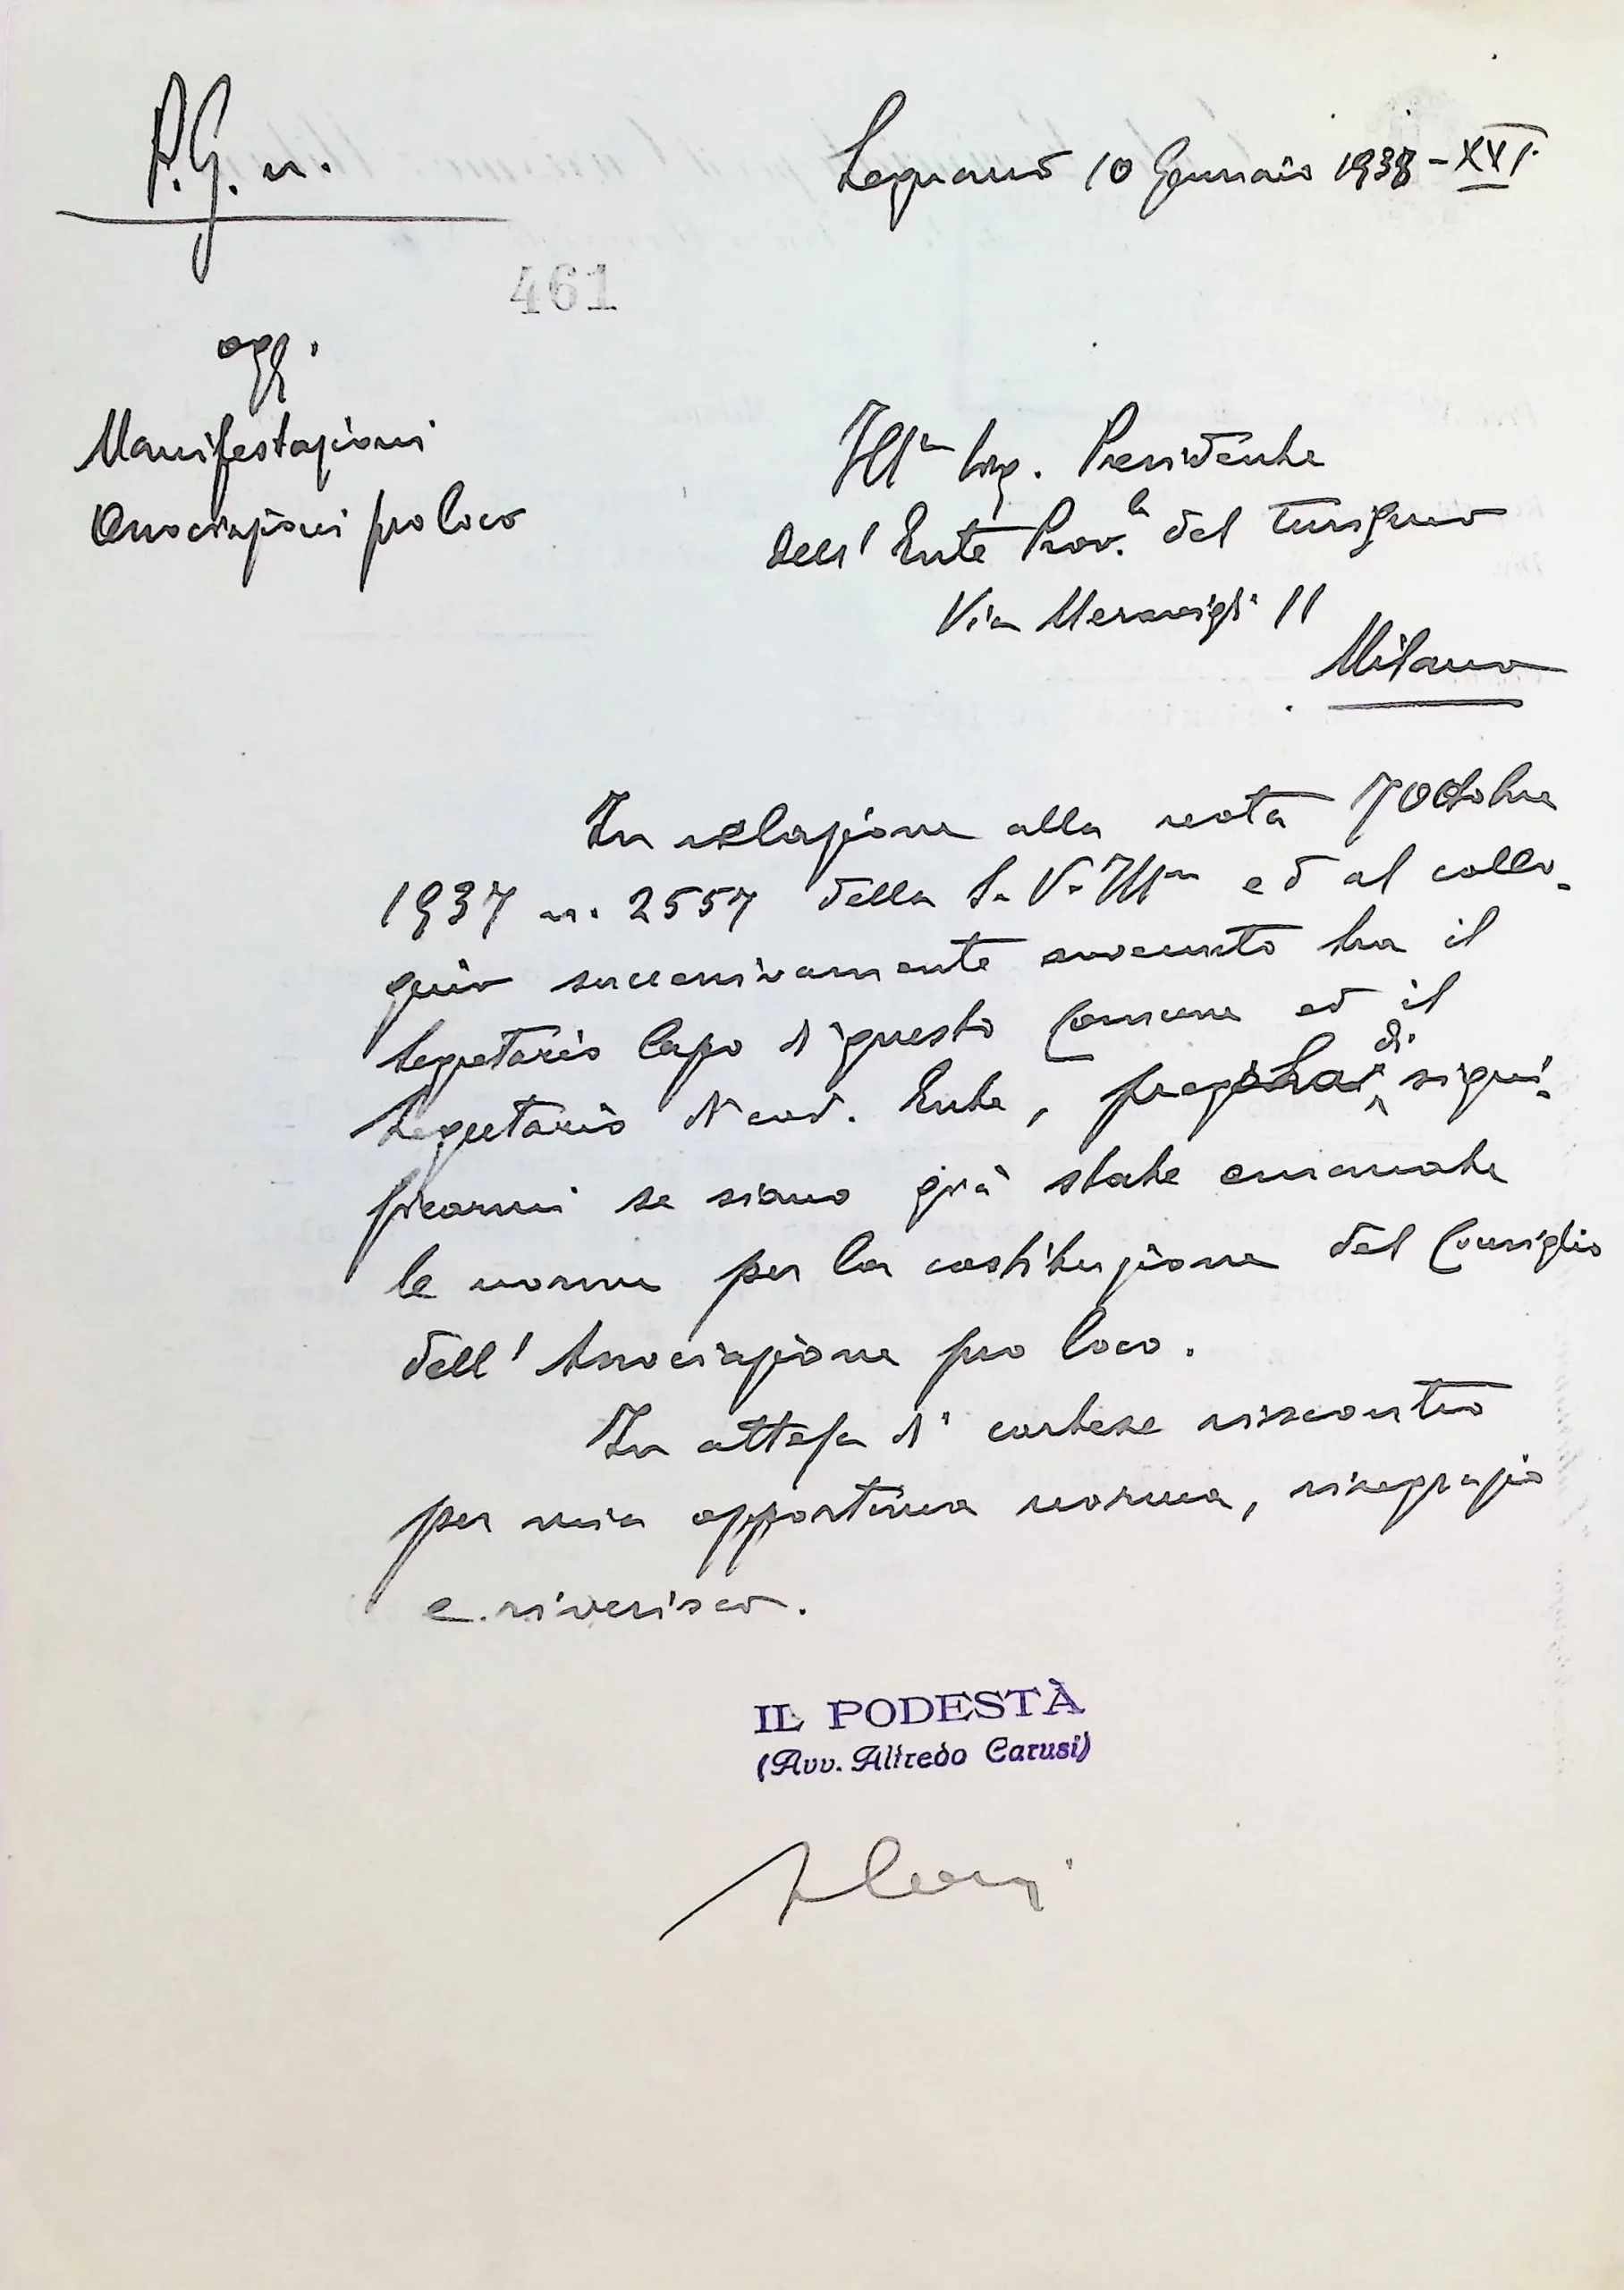 P.G. n.
Legnano 10 Gennaio 1938 - XVI.
461
ogg.
Manifestazioni
Associazioni pro loco
Ill.mo Sig. Presidente
dell'Ente Prov.le del Turismo
Via Meravigli 11
Milano
In relazione alla nota 7 Ottobre
1937 n. 2557 della S. V. Ill.ma ed al collo-
quio successivamente avvenuto tra il
Segretario Capo di questo Comune ed il
Segretario di cod. Ente, di signi-
ficarmi se siano già state emanate
le norme per la costituzione del Consiglio
dell'Associazione pro loco.
In attesa di cortese riscontro
per mia opportuna norma, ringrazio
e riverisco.
IL PODESTÀ
(Avv. Alfredo Carusi)